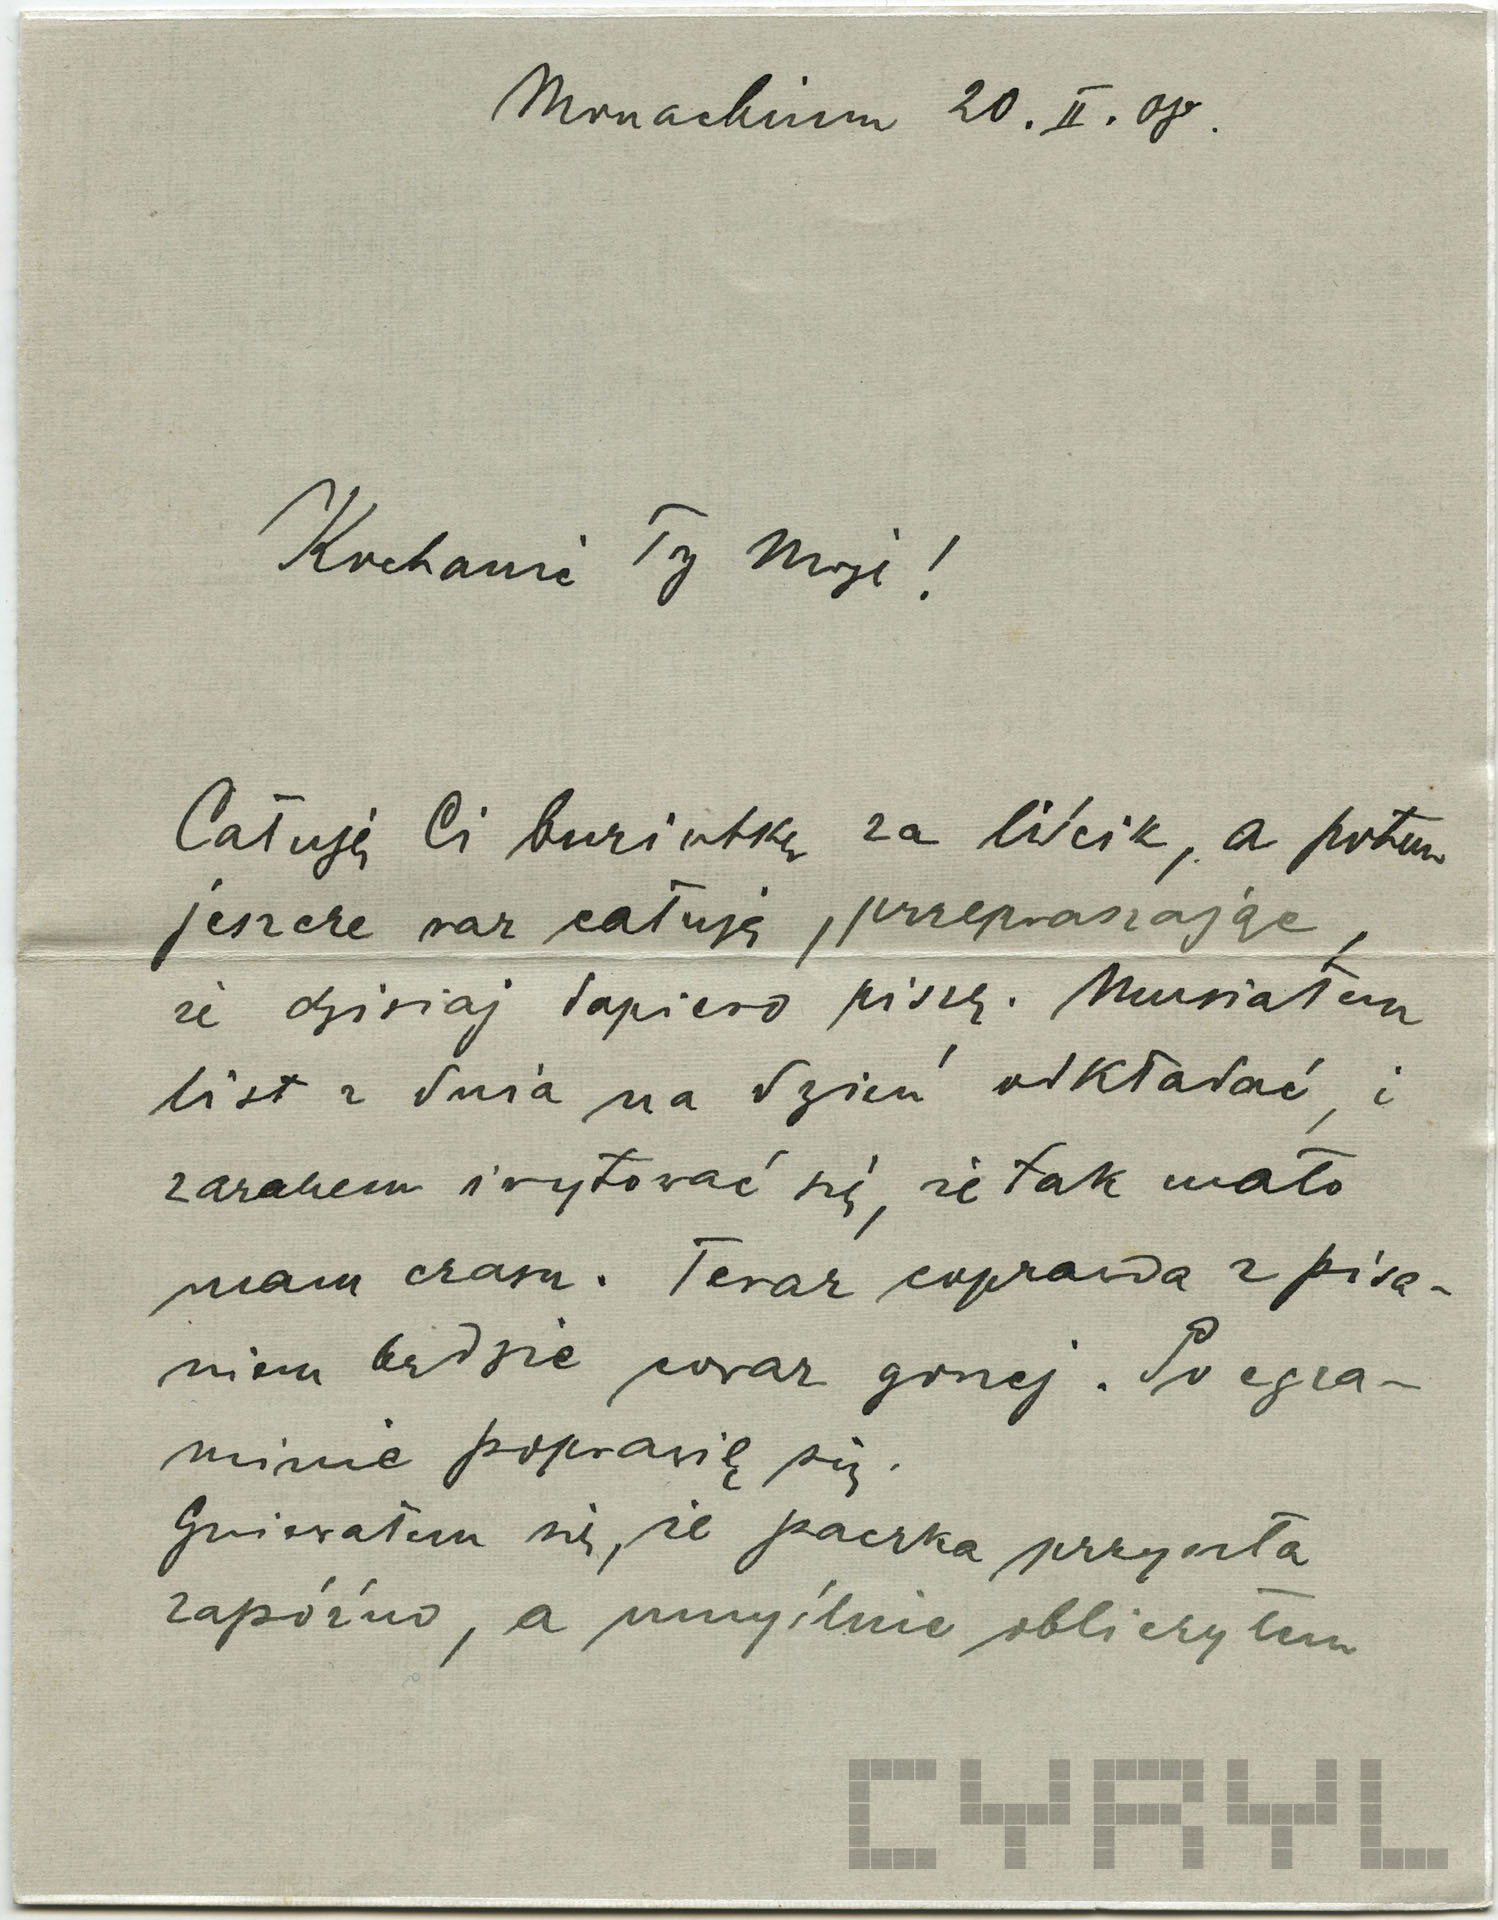 Monachium 20. II. 08.
Kochanie Ty Moje!
Całuję Ci buziutkę za liścik, a potem
jeszcze raz całuję, przepraszając,
że dzisiaj dopiero piszę. Musiałem
list z dnia na dzień odkładać, i
zarazem irytować się, że tak mało
mam czasu. Teraz coprawda z pisa-
niem będzie coraz gorzej. Po egza-
minie poprawię się.
Gniewałem się, że paczka przyszła
zapóźno, a umyślnie obliczyłem
CYRYL